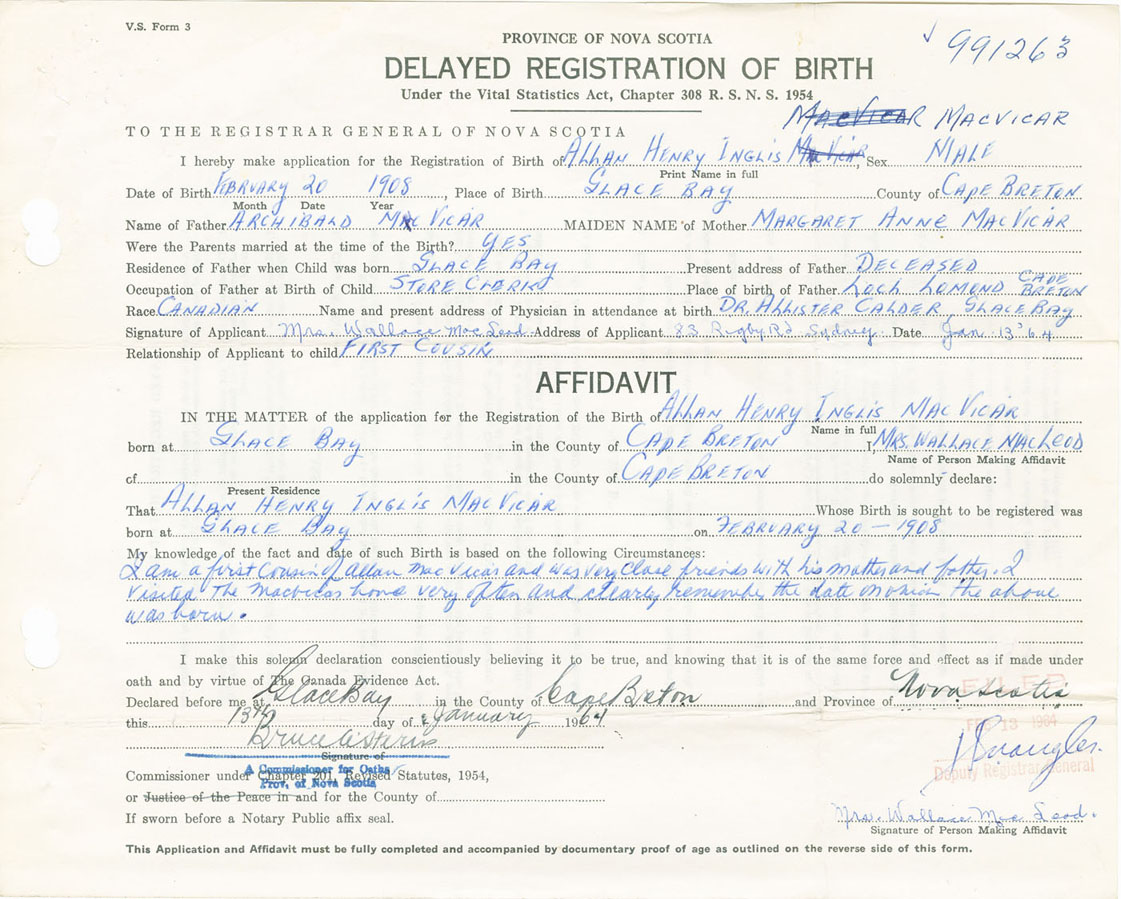 V.S. Form 3
PROVINCE OF NOVA SCOTIA
991263
DELAYED REGISTRATION OF BIRTH
Under the Vital Statistics Act, Chapter 308 R. S. N. S. 1954
MACVICAR MACVICAR
TO THE REGISTRAR GENERAL OF NOVA SCOTIA
I hereby make application for the Registration of Birth of ALLAN HENRY INGLIS MacVICAR, Sex MALE
Print Name in full
Date of Birth FEBRUARY 20 1908, Place of Birth GLACE BAY County of CAPE BRETON
Month Date Year
Name of Father ARCHIBALD MACVICAR MAIDEN NAME of Mother MARGARET ANNE MACVICAR
Were the Parents married at the time of the Birth? YES
Residence of Father when Child was born GLACE BAY Present address of Father DECEASED
Occupation of Father at Birth of Child STORE CLERK Place of birth of Father LOCH LOMOND CAPE BRETON
Race CANADIAN Name and present address of Physician in attendance at birth DR. ALLISTER CALDER, GLACE BAY
Signature of Applicant Mrs. Wallace MacLeod Address of Applicant 83 Rigby Rd Sydney Date Jan. 13 '64
Relationship of Applicant to child FIRST COUSIN
AFFIDAVIT
IN THE MATTER of the application for the Registration of the Birth of ALLAN HENRY INGLIS MACVICAR
Name in full
born at GLACE BAY in the County of CAPE BRETON I, MRS. WALLACE MACLEOD
Name of Person Making Affidavit
of in the County of CAPE BRETON do solemnly declare:
Present Residence
That ALLAN HENRY INGLIS MACVICAR Whose Birth is sought to be registered was
born at GLACE BAY on FEBRUARY 20 - 1908
My knowledge of the fact and date of such Birth is based on the following Circumstances:
I am a first cousin of Allan MacVicar and was very close friends with his mother and father. I
visited the MacVicar home very often and clearly remember the date on which the above
was born.
I make this solemn declaration conscientiously believing it to be true, and knowing that it is of the same force and effect as if made under
oath and by virtue of The Canada Evidence Act.
Declared before me at Glace Bay in the County of Cape Breton and Province of Nova Scotia
FILED
this 13th day of January 1964
FEB 13 1964
Bruce
Signature of
A Commissioner for Oaths
Prov. of Nova Scotia
Deputy Registrar General
Commissioner under Chapter 201, Revised Statutes, 1954,
or Justice of the Peace in and for the County of
If sworn before a Notary Public affix seal.
Mrs. Wallace MacLeod.
Signature of Person Making Affidavit
This Application and Affidavit must be fully completed and accompanied by documentary proof of age as outlined on the reverse side of this form.